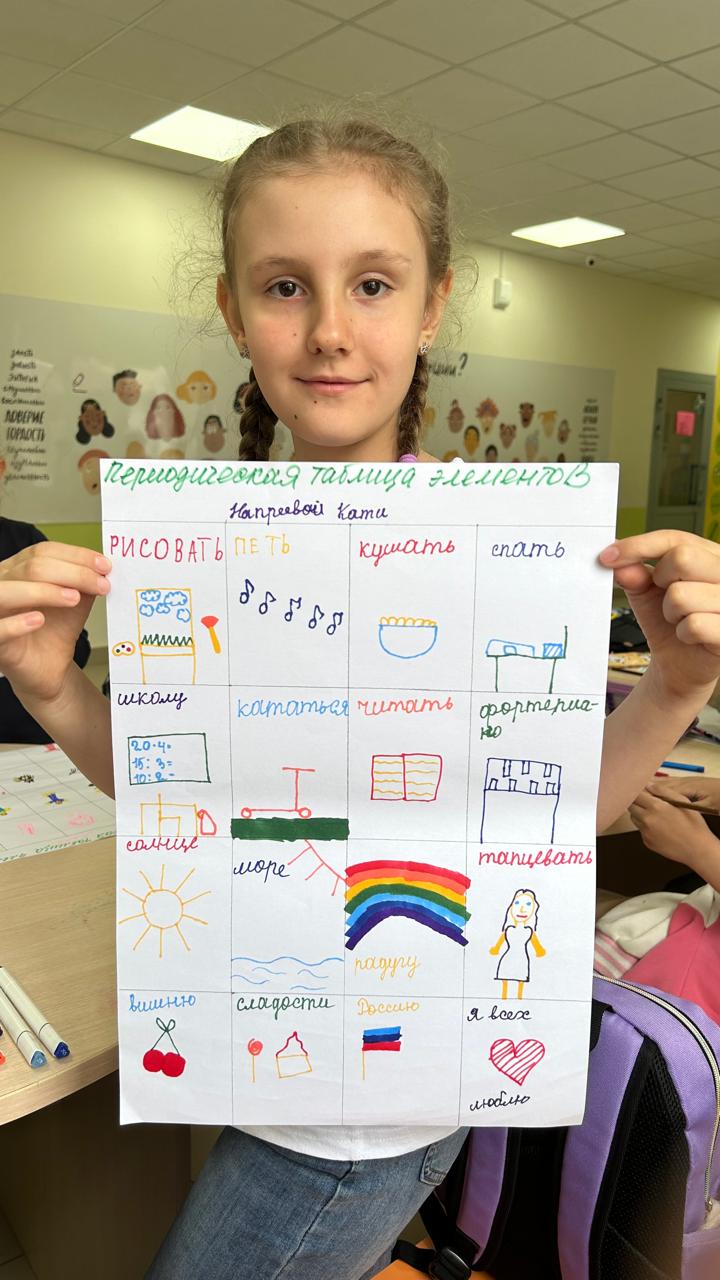 ДОВЕРИЕ
ГОРДОСТЬ
Периодическая таблица элементов
Напреевой Кати
РИСОВАТЬ
ПЕТЬ
кушать
спать
школу
20·4=
15:3=
10:2=
кататься
читать
фортепиа-
но
солнце
море
радугу
танцевать
вишню
сладости
Россию
я всех
люблю